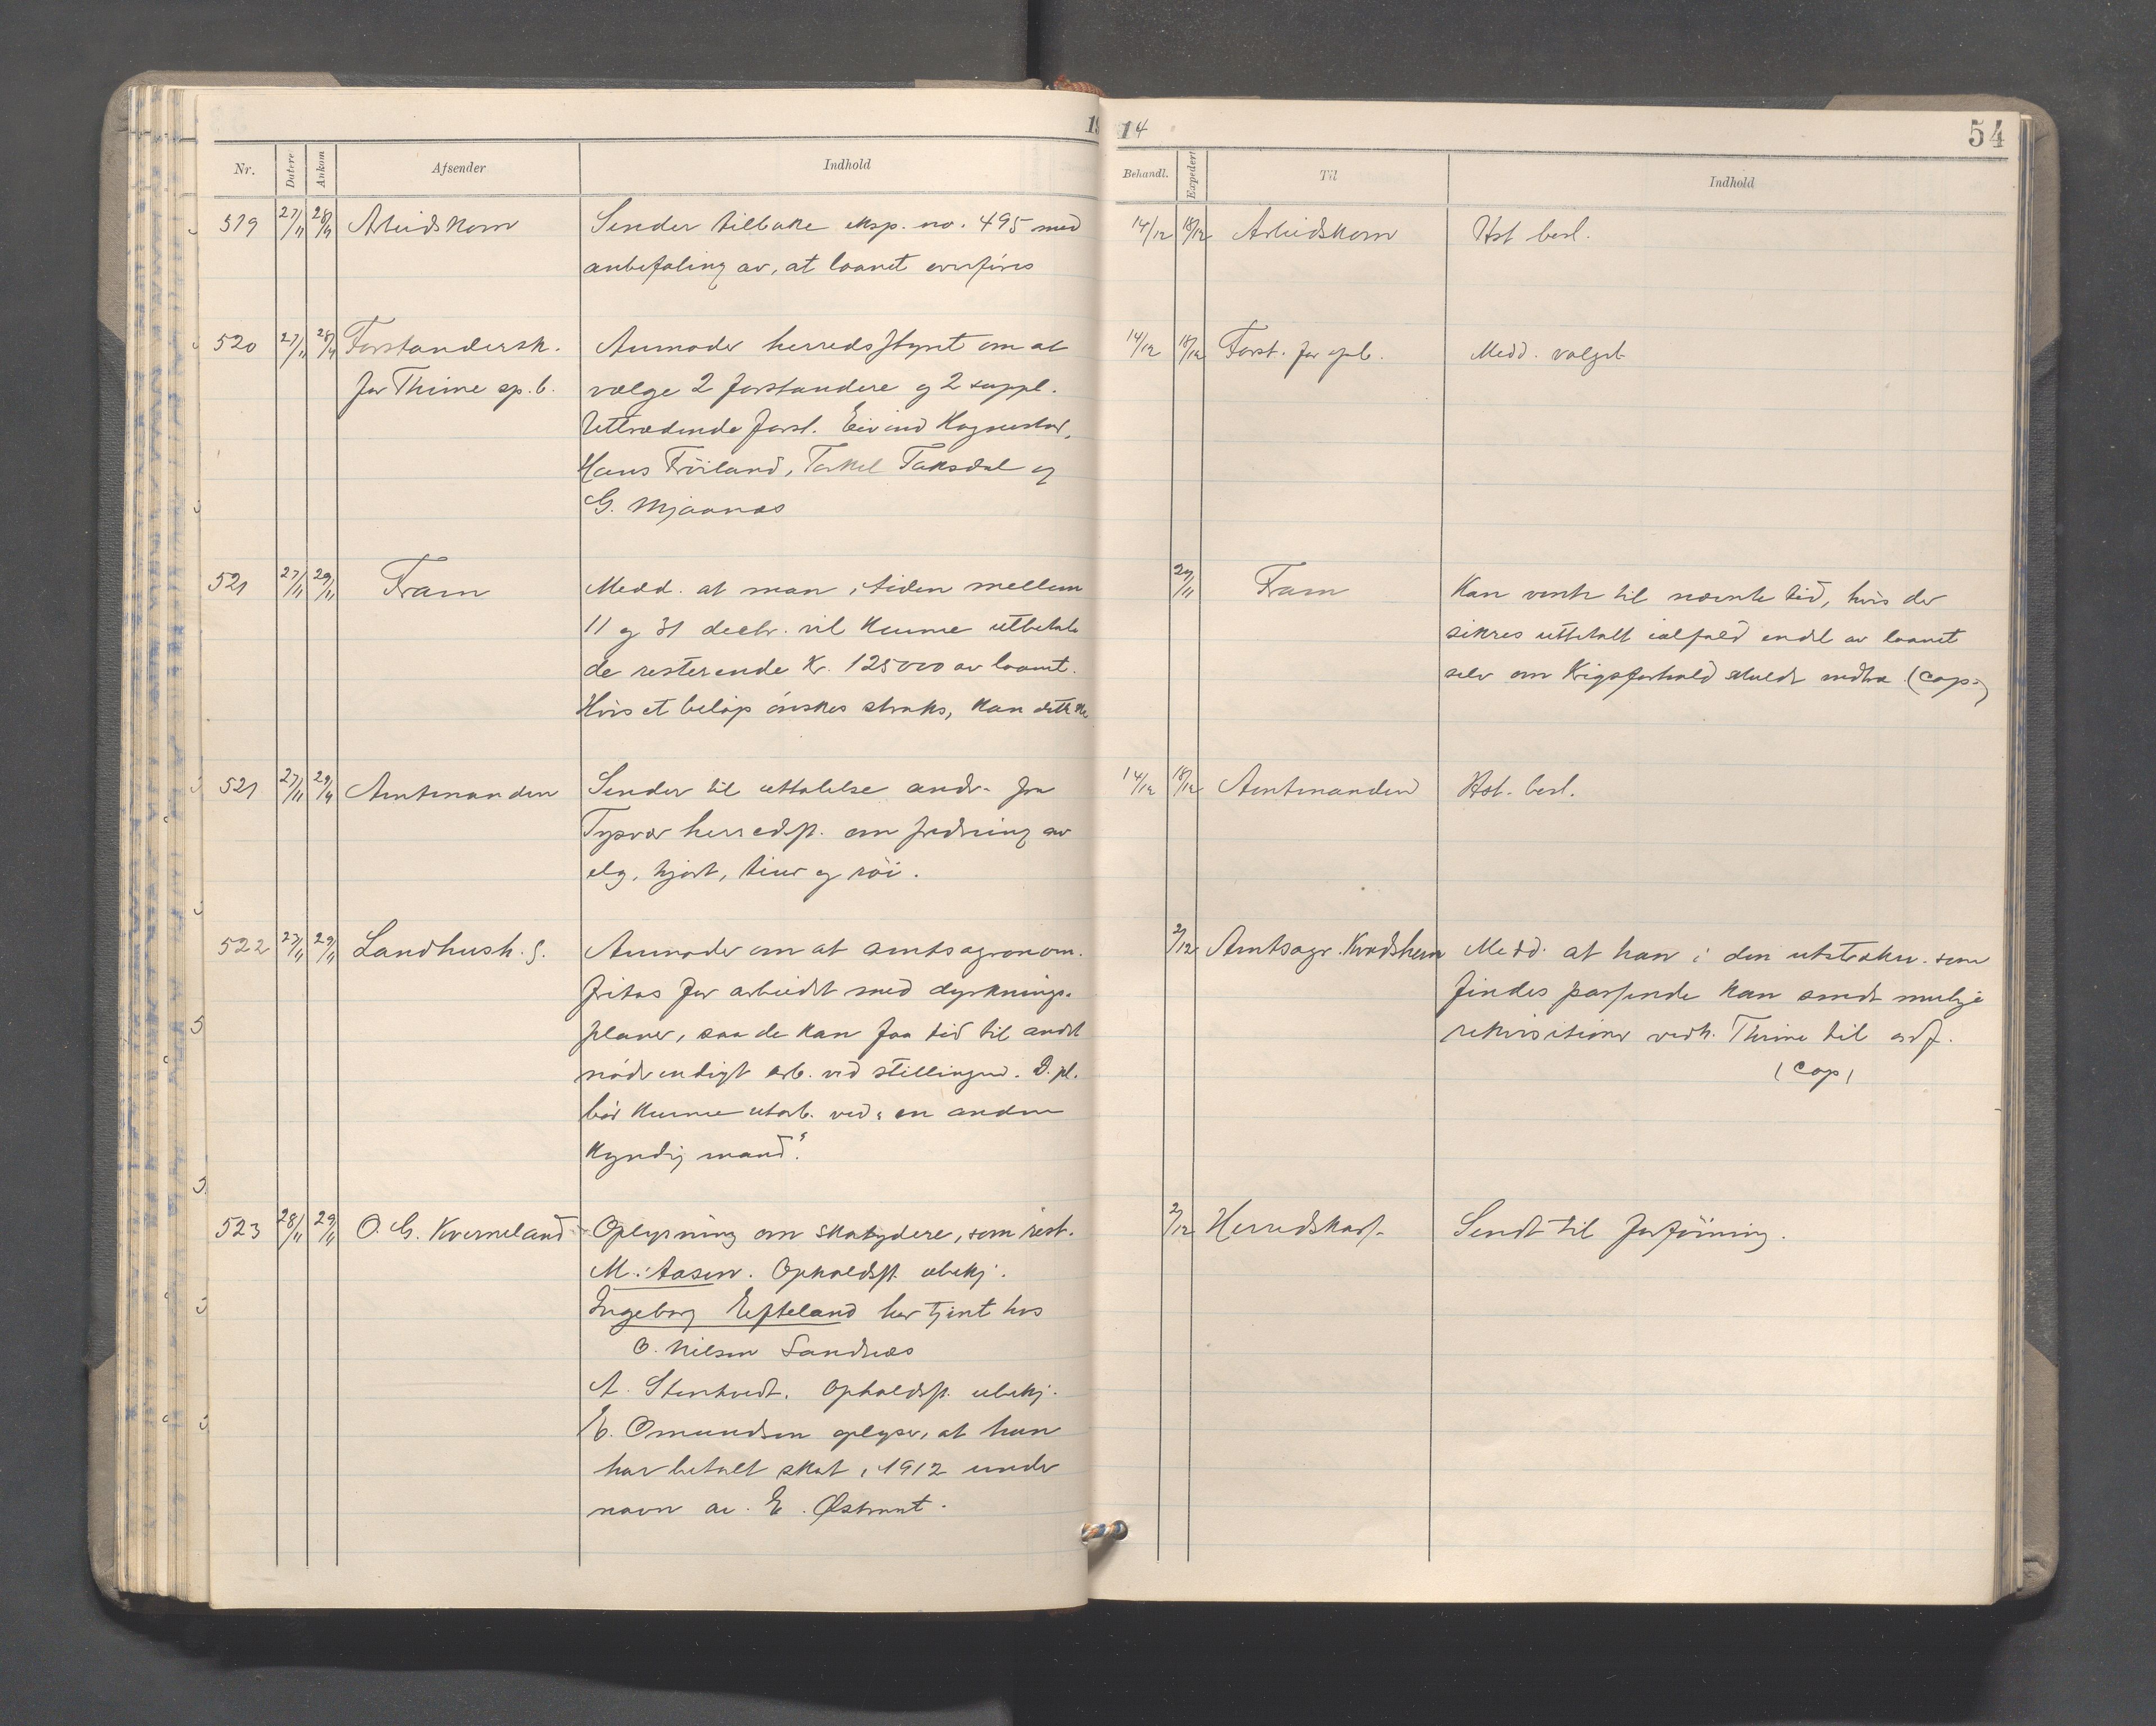 19 14 54
Nr. Datere Ankom Afsender Indhold
Behandl. Expedert Til Indhold
519 27/11 28/11 Arbeidskom Sender tilbake eksp. no. 495 med
anbefaling av, at laanet overføres
14/12 18/12 Arbeidskom Hst besl.
520 27/11 28/11 Forstandersk. Anmoder herredsstyret om at
for Thime sp.b. vælge 2 forstandere og 2 suppl.
Uttrædende forst. Eivind
Hans Fröiland, Torkel Taksdal og
G. Mjaanes
14/12 18/12 Forst. for spb. Medd. valget
521 27/11 29/11 Fram Medd. at man i tiden mellem
11 og 31 decbr. vil kunne utbetale
de resterende Kr. 125000 av laanet.
Hvis et beløp ønskes straks, kan dette
29/11 Fram Kan vente til nævnte tid, hvis der
sikres utbetalt ialfald endel av laanet
selv om Krigsforhold skulde indtræ. (Cop.)
521 27/11 29/11 Amtmanden Sender til uttalelse andr. fra
Tysvær herredsst. om fredning av
elg, hjort, tiur og röi.
14/12 18/12 Amtmanden Hst. besl.
522 27/11 29/11 Landhush.s. Anmoder om at amtsagronom.
fritas for arbeidet med dyrknings-
planer, saa de kan faa tid til andet
nödvendigt arb. ved stillingen. D. pl.
bör kunne utarb. ved "en anden
kyndig mand".
2/12 Amtsagr. Kvadsheim Medd. at han i den utstrækn. som
findes passende kan sende mulige
rekvisitioner vedk. Thime til
(Cop)
523 28/11 29/11 O. G. Kverneland Oplysning om skatydere, som rest.
M. Aasen. Opholdsst. ubekj.
Ingeborg Eefteland har tjent hos
O. Nilsen Sandnes
A. Stenkvedt. Opholdsst. ubekj.
E. Omundsen oplyser, at han
har betalt skat i 1912 under
navn av E. Østrant.
2/12 Herredskass. Sendt til forföining.